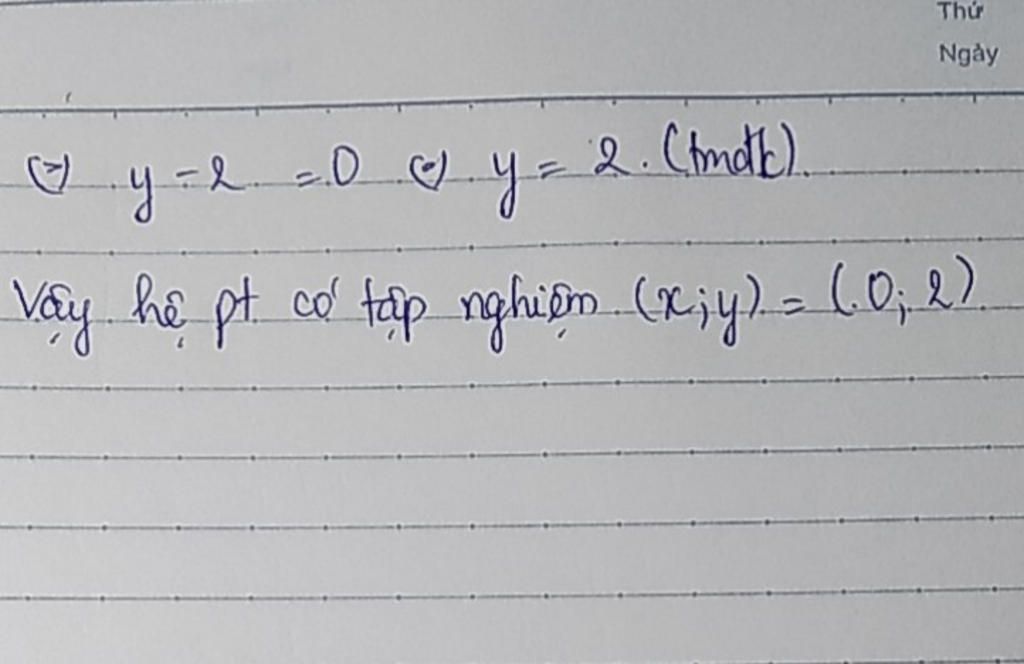 Thứ
Ngày
(=) y - 2 = 0 (=) y = 2. (tmđk).
Vậy hệ pt có tập nghiệm (x; y) = (0; 2)